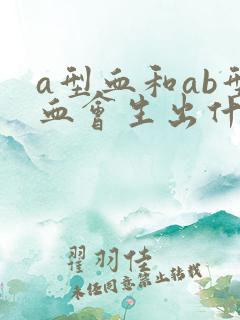 a型血和ab型
血會生出什
翟羽佳
未经同意禁止转载